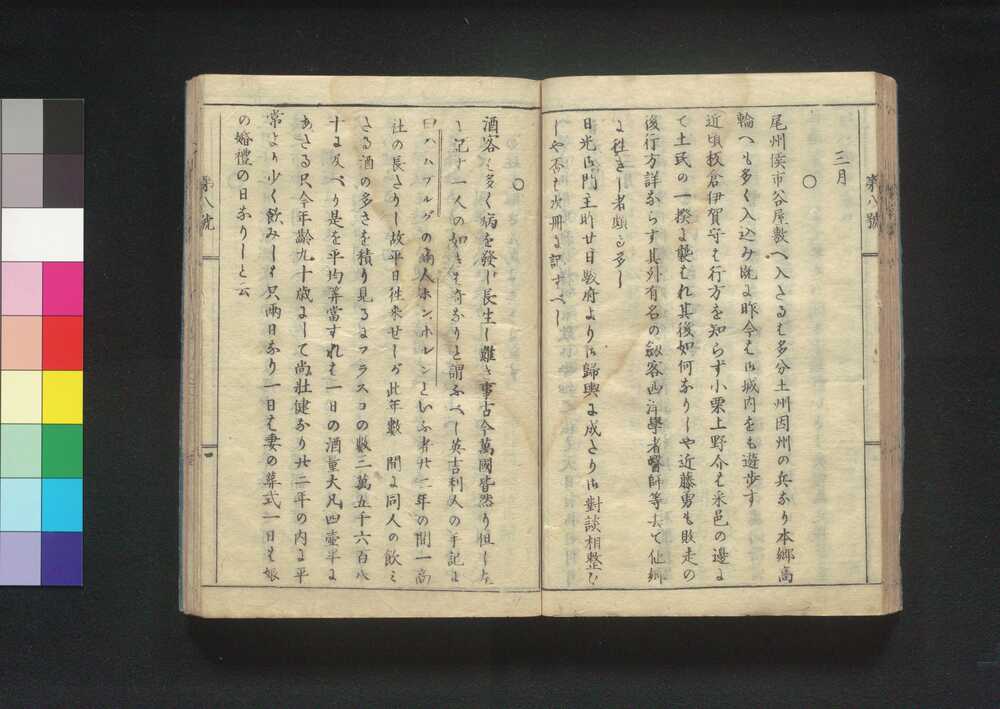 三月
○
尾州侯市谷屋敷へ入さるは多分土州因州の兵なり本郷高
輪へも多く入込み既に昨今は御城内をも遊歩す
近頃板倉伊賀守は行方を知らず小栗上野介は采邑の邊に
て土民の一揆に襲はれ其後如何なりしや近藤勇も敗走の
後行方詳ならす其外有名の劔客西洋學者醫師等去て他郷
に往きし者頗る多し
日光御門主昨廿日駿府より御歸輿に成さり御對談相整ひ
しや否は次冊に記すべし
第八號
○
酒客に多く病を發し長生し難き事古今萬國皆然り但し左
に記す一人の如きは奇なりと謂ふべし英吉利人の手記に
曰ハムブルグの商人ホンホルレンといふ者廿二年の間一商
社の長たりし故平日往來せしが此年數 間に同人の飲み
たる酒の多さを積り見るにフラスコの數三萬五千六百八
十に及べり是を平均算當すれは一日の酒量大凡四壺半に
あたる只今年齡九十歳にして尚壯健なり廿二年の内に平
常より少く飲みしは只兩日なり一日は妻の葬式一日は娘
の婚禮の日なりしと云
第八號
一